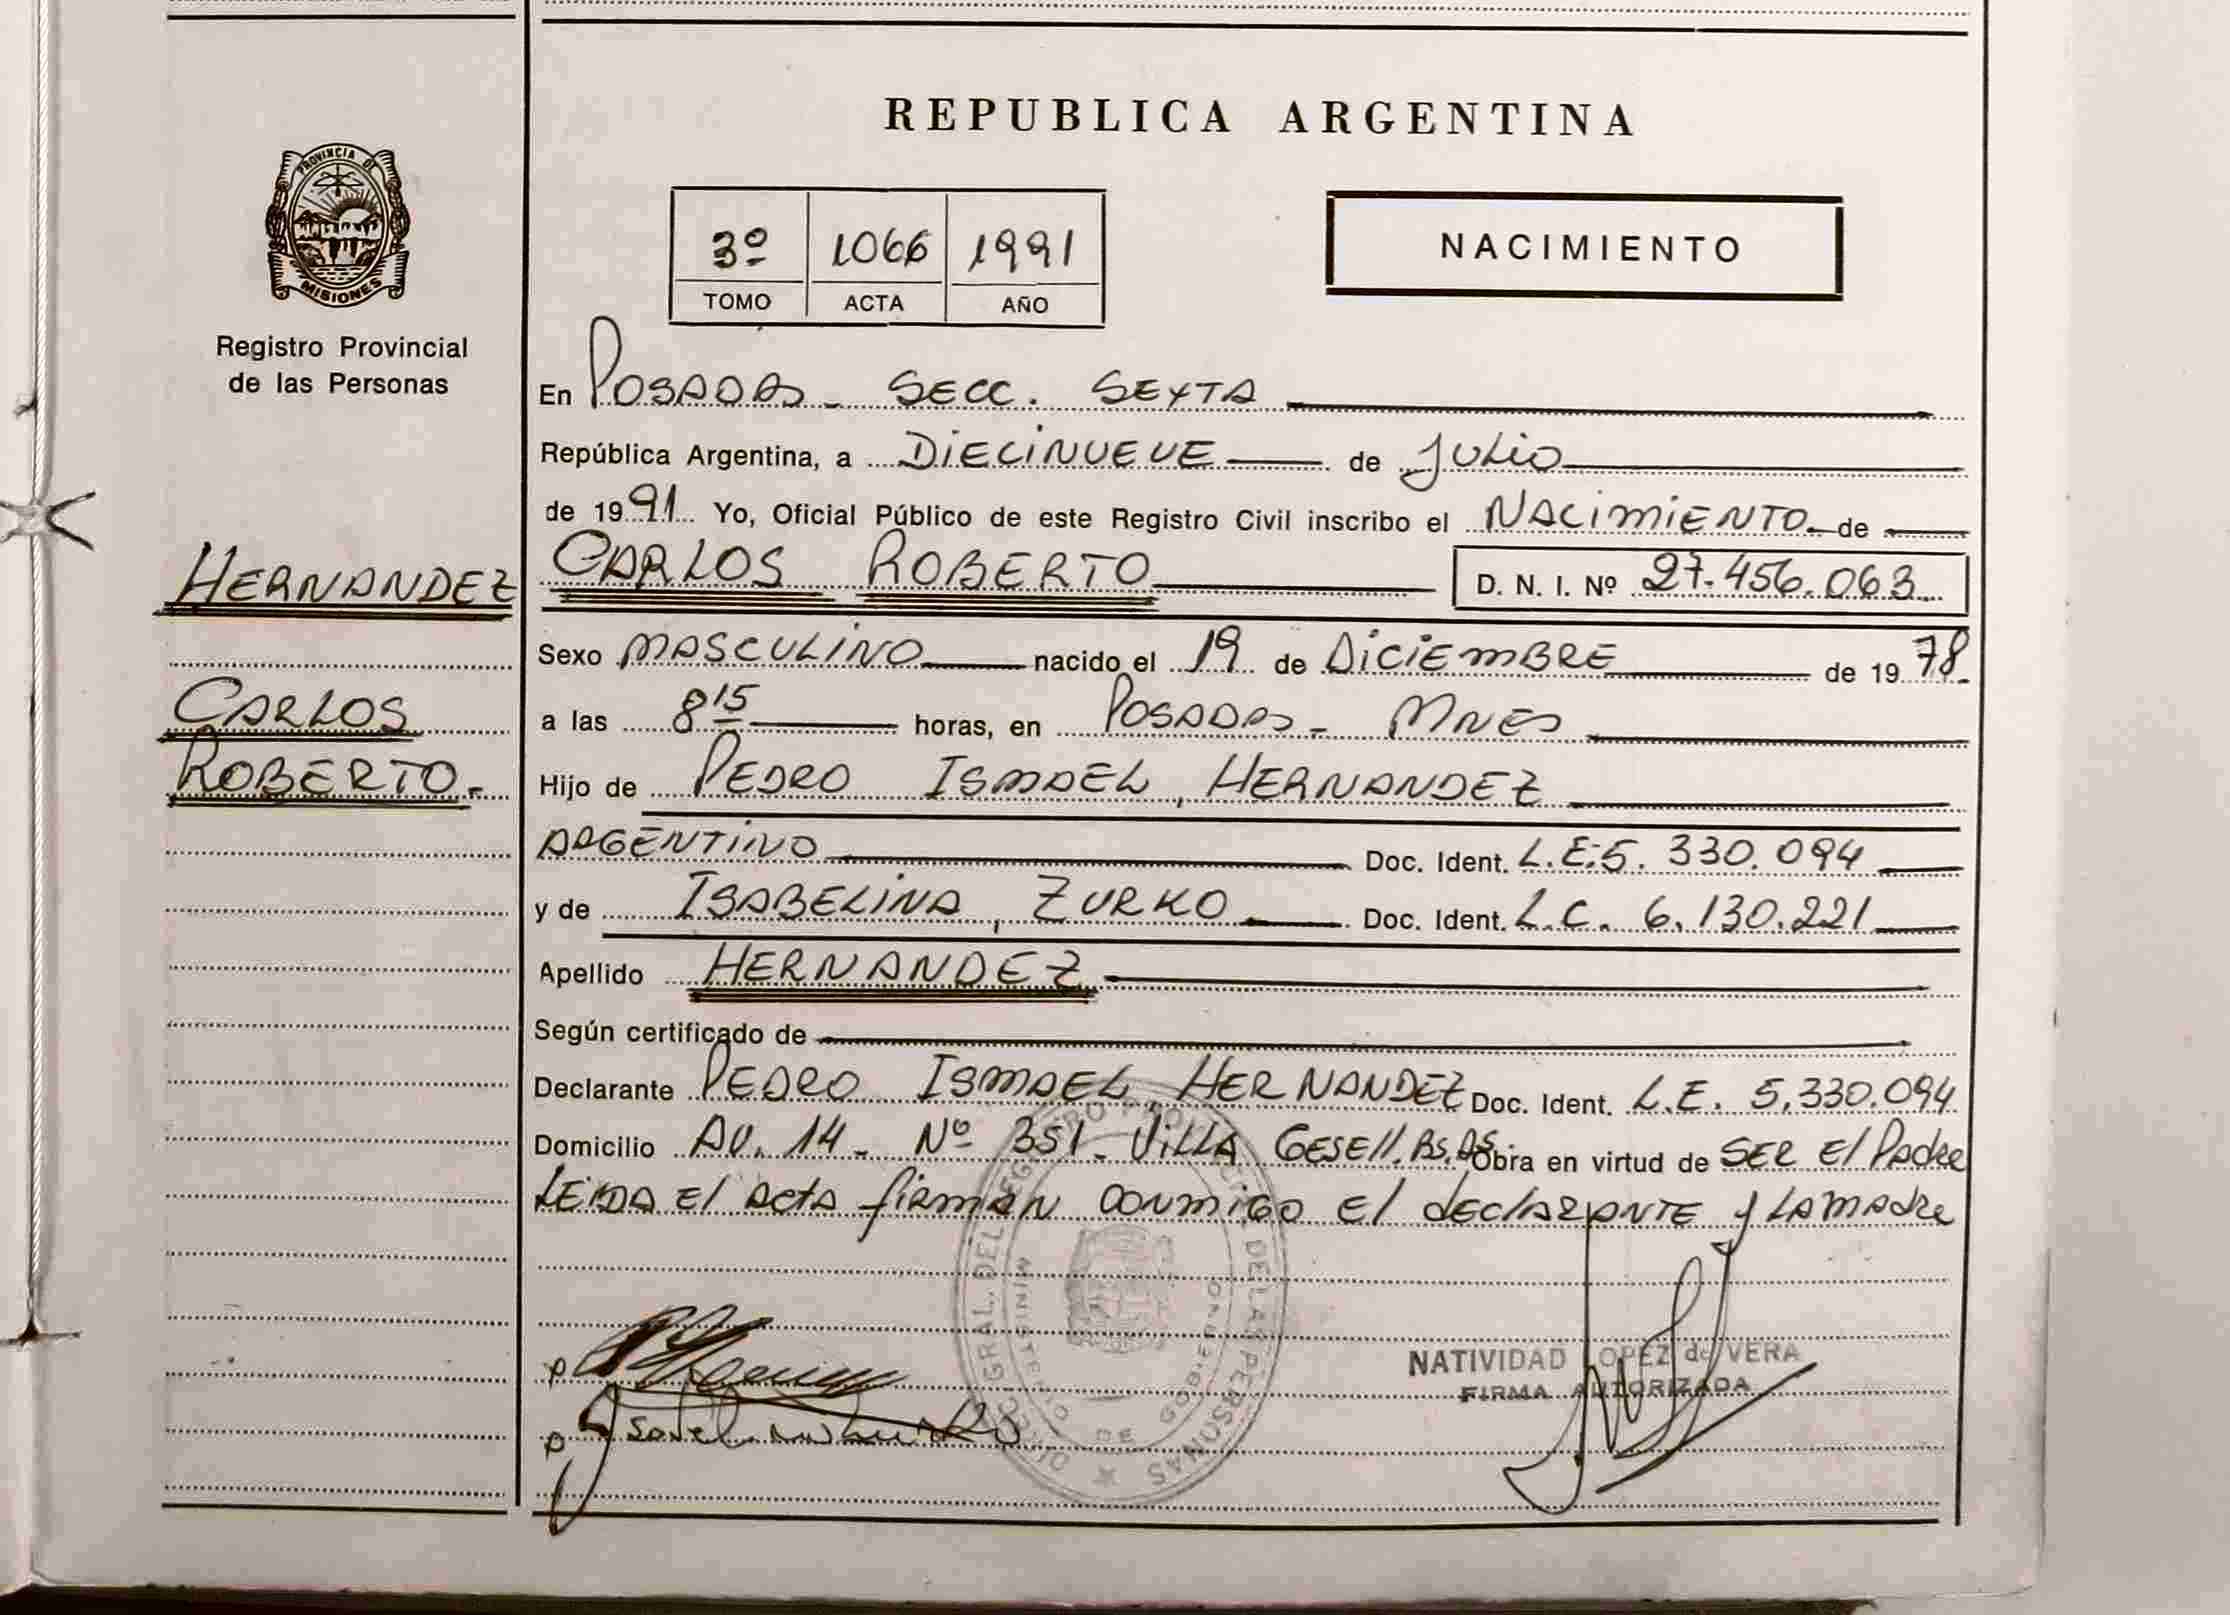 REPUBLICA ARGENTINA
PROVINCIA DE
MISIONES
Registro Provincial
de las Personas
3º 1066 1991
TOMO ACTA AÑO
NACIMIENTO
En POSADAS - SECC. SEXTA
República Argentina, a DIECINUEVE de JULIO
de 1991 Yo, Oficial Público de este Registro Civil inscribo el NACIMIENTO de
HERNANDEZ
CARLOS
ROBERTO.-
CARLOS ROBERTO D. N. I. Nº 27.456.063
Sexo MASCULINO nacido el 19 de DICIEMBRE de 1978.
a las 8 15 horas, en POSADAS - MNES
Hijo de PEDRO ISMAEL, HERNANDEZ
ARGENTINO Doc. Ident. L.E: 5.330.094
y de ISABELINA, ZURKO Doc. Ident. L.C. 6.130.221
Apellido HERNANDEZ
Según certificado de
Declarante PEDRO ISMAEL, HERNANDEZ Doc. Ident. L.E. 5.330.094
Domicilio AV. 14 - Nº 351 - VILLA GESELL. Bs. As. Obra en virtud de SER El Padre
LEIDA El acta firman conmigo El declarante y La madre
DIREC. GRAL. DEL REGISTRO PROVINCIAL DE LAS PERSONAS
MINISTERIO DE GOBIERNO
NATIVIDAD LOPEZ de VERA
FIRMA AUTORIZADA